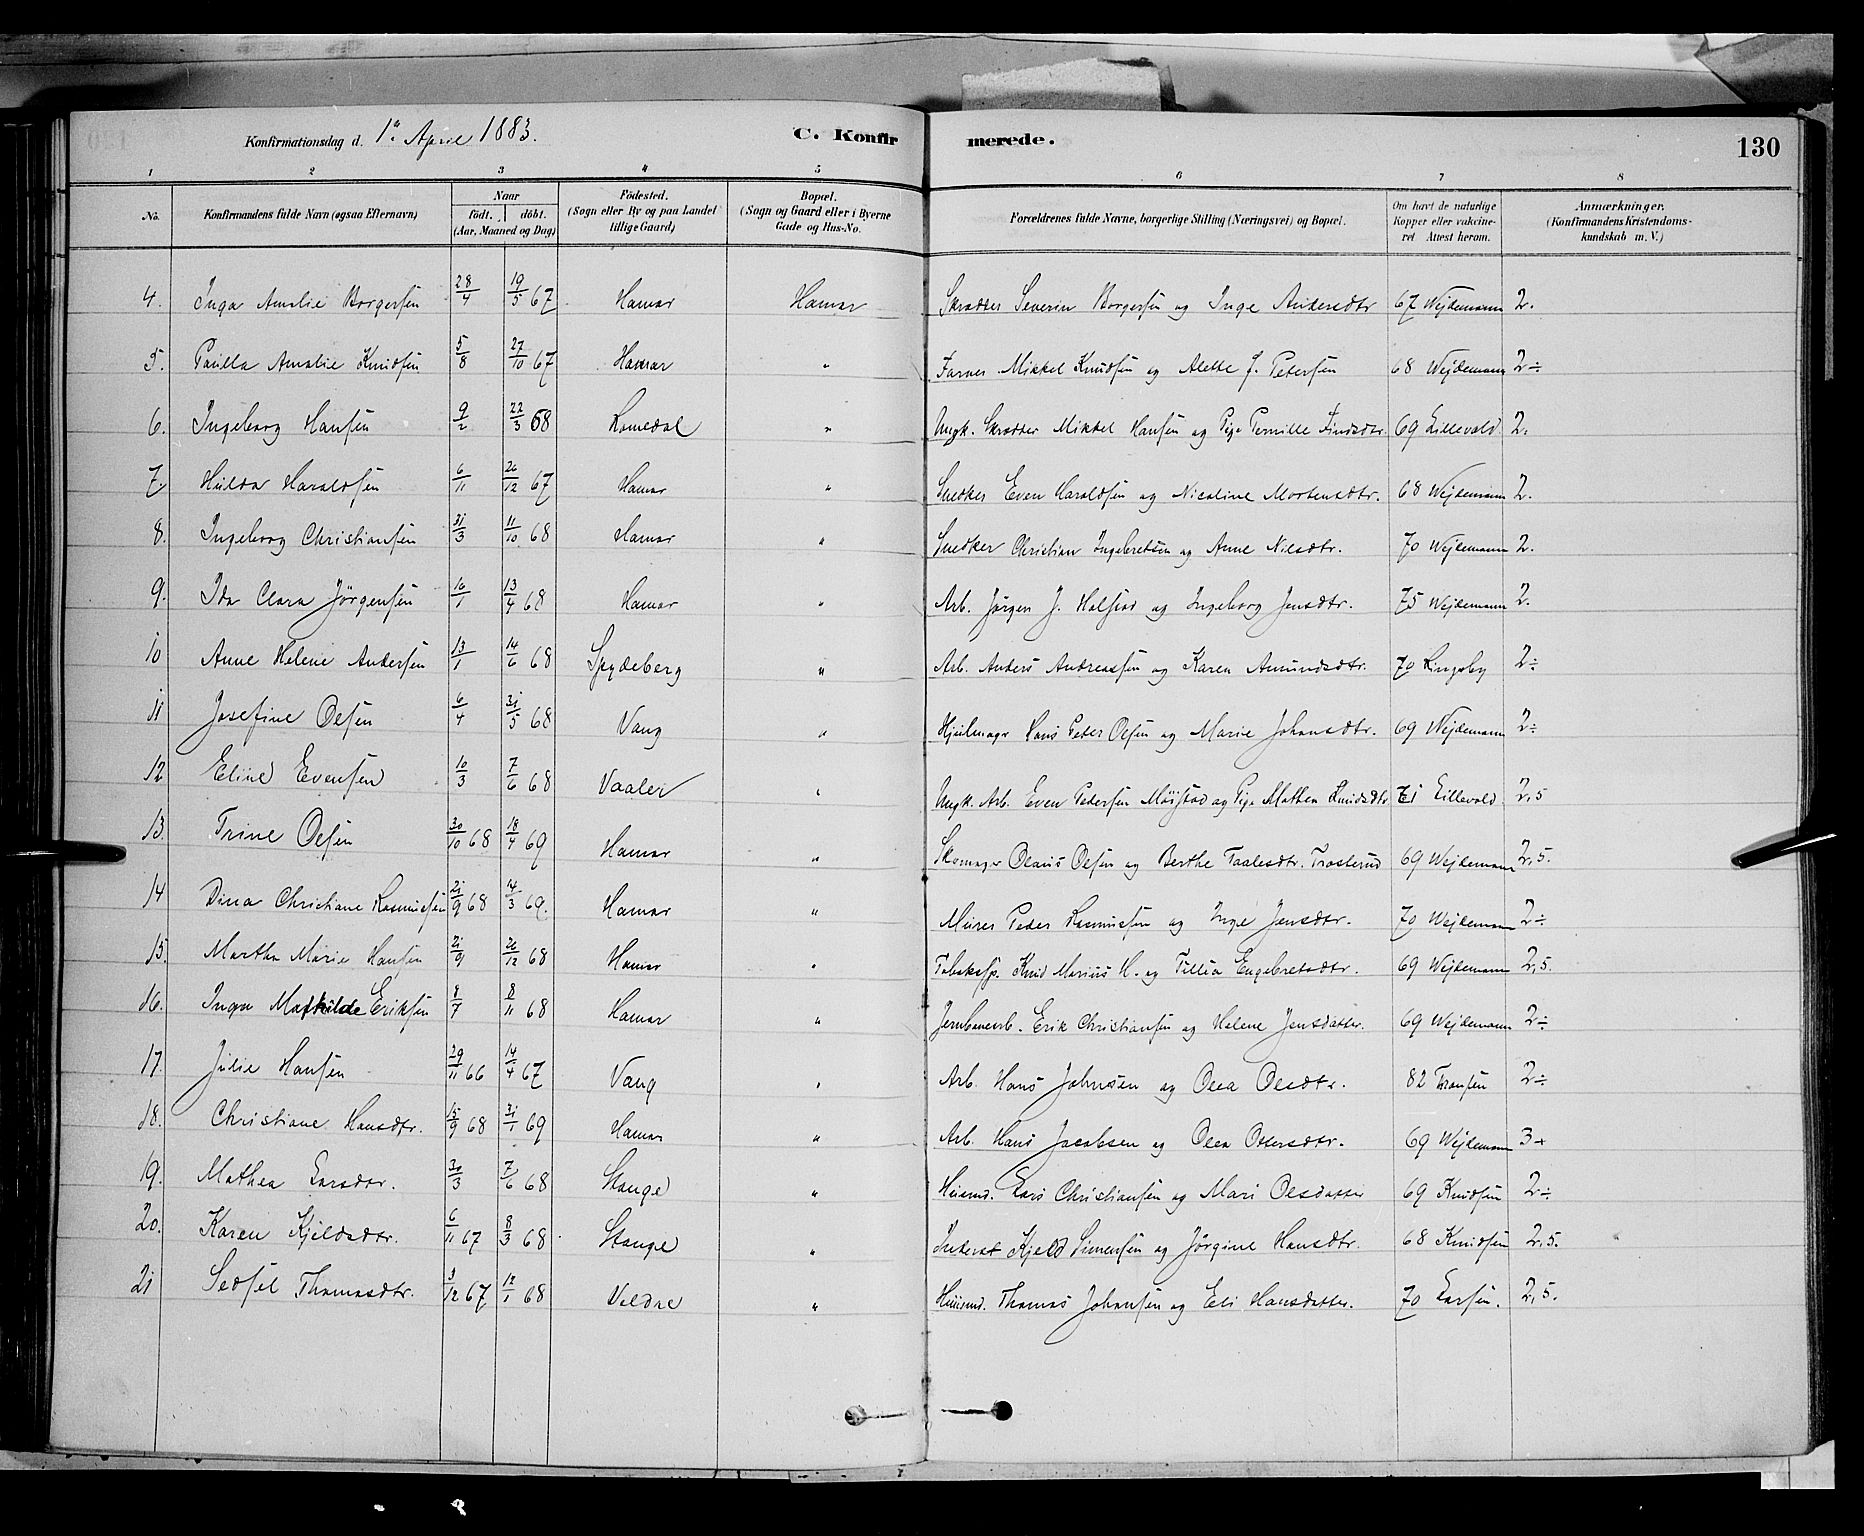 Konfirmationsdag d. 1ste April 1883. C. Konfirmerede. 130
1 2 3 4 5 6 7 8
No. Konfirmandens fulde Navn (ogsaa Efternavn) Naar födt. döbt. (Aar, Maaned og Dag) Födested. (Sogn eller By og paa Landet tillige Gaard) Bopæl. (Sogn og Gaard eller i Byerne Gade og Hus-No. Forældrenes fulde Navne, borgerlige Stilling (Næringsvei) og Bopæl. Om havt de naturlige Kopper eller vakcineret Attest herom. Anmærkninger. (Konfirmandens Kristendomskundskab m. V.)
4. Inga Amalie Borgersen 28/4 19/5 67 Hamar Hamar Skrædder Severin Borgersen og Inge Andersdtr 67 Wejdemann 2.
5. Paulla Amalie Knudsen 5/8 27/10 67 Hamar " Farver Mikkel Knudsen og Alette J. Petersen 68 Wejdemann 2÷
6. Ingeborg Hansen 9/2 22/3 68 Romedal " Ungk. Skrædder Mikkel Hansen og Pige Pernille Findsdtr. 69 Lillevold. 2.
7. Hulda Haraldsen 6/11 26/12 67 Hamar " Snedker Even Haraldsen og Nicoline Mortensdtr. 68 Wejdemann 2.
8. Ingeborg Christiansen 31/3 11/10 68 Hamar " Snedker Christian Ingebretsen og Anne Nilsdtr. 70 Wejdemann 2.
9. Ida Clara Jörgensen 10/1 13/4 68 Hamar " Arb. Jörgen J. Holstad og Ingeborg Jensdtr. 75 Wejdemann 2.
10 Anne Helene Andersen 13/1 14/6 68 Spydeberg " Arb. Anders Andreassen og Karen Amundsdtr. 70 Lingsby 2÷
11 Josefine Olsen 6/4 31/5 68 Vang " Hjulmagr Hans Peder Olsen og Marie Johansdtr. 69 Wejdemann 2÷
12 Eline Evensen 10/3 7/6 68 Vaaler " Ungk. Arb. Even Pedersen Möistad og Pige Mathea Knudsdtr 71 Lillevold. 2,5
13. Trine Olsen 30/10 68 18/4 69 Hamar " Skomager Olaus Olsen og Berthe Paalesdtr. Trosterud 69 Wejdemann 2,5.
14 Dina Christiane Rasmussen 21/9 68 14/3 69. Hamar " Murer Peder Rasmussen og Inge Jensdtr. 70 Wejdemann 2÷
15. Martha Marie Hansen 21/9 26/12 68 Hamar " Tobaksp. Knud Marius H. og Tillia Engebretsdtr. 69 Wejdemann 2,5.
16. Inga Mathilde Eriksen 8/7 8/11 68 Hamar " Jernbanearb. Erik Christiansen og Helene Jensdatter. 69 Wejdemann 2÷
17. Julie Hansen 29/11 66 14/4 67 Vang " Arb. Hans Johnsen og Olea Olsdtr. 82 Thransen 2÷
18. Christiane Hansdtr. 15/9 68 31/1 69 Hamar " Arb. Hans Jacobsen og Olea Ottersdtr. 69 Wejdemann 3+
19. Mathea Larsdtr. 30/3 7/6 68 Stange " Huusmd. Lars Christiansen og Mari Olsdatter 69 Knudsen 2÷
20. Karen Kjeldsdtr. 6/11 67 8/3 68 Stange " Inderst Kjeld Simensen og Jörgine Hansdtr. 68 Knudsen 2,5.
21 Sedsel Thomasdtr. 3/12 67 12/1 68 Veldre " Huusmd. Thomas Johansen og Eli Hansdatter. 70 Larsen. 2,5.